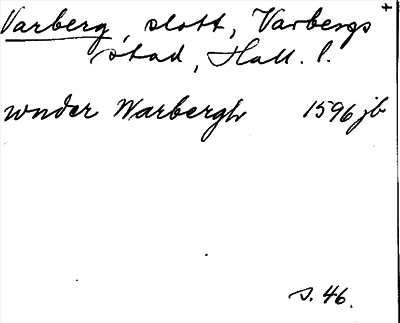 Varberg, slott, Varbergs +
stad, Hall. l.
wnder Warbergh 1596 jb
s. 46.